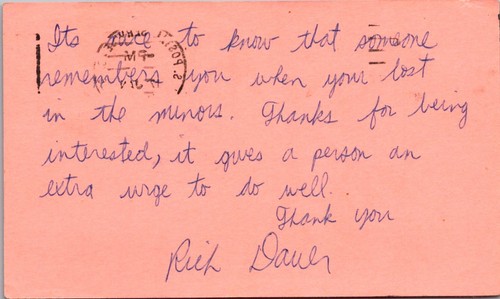 Its nice to know that someone
remembers you when your lost
in the minors. Thanks for being
interested, it gives a person an
extra urge to do well.
Thank you
Rich Dauer